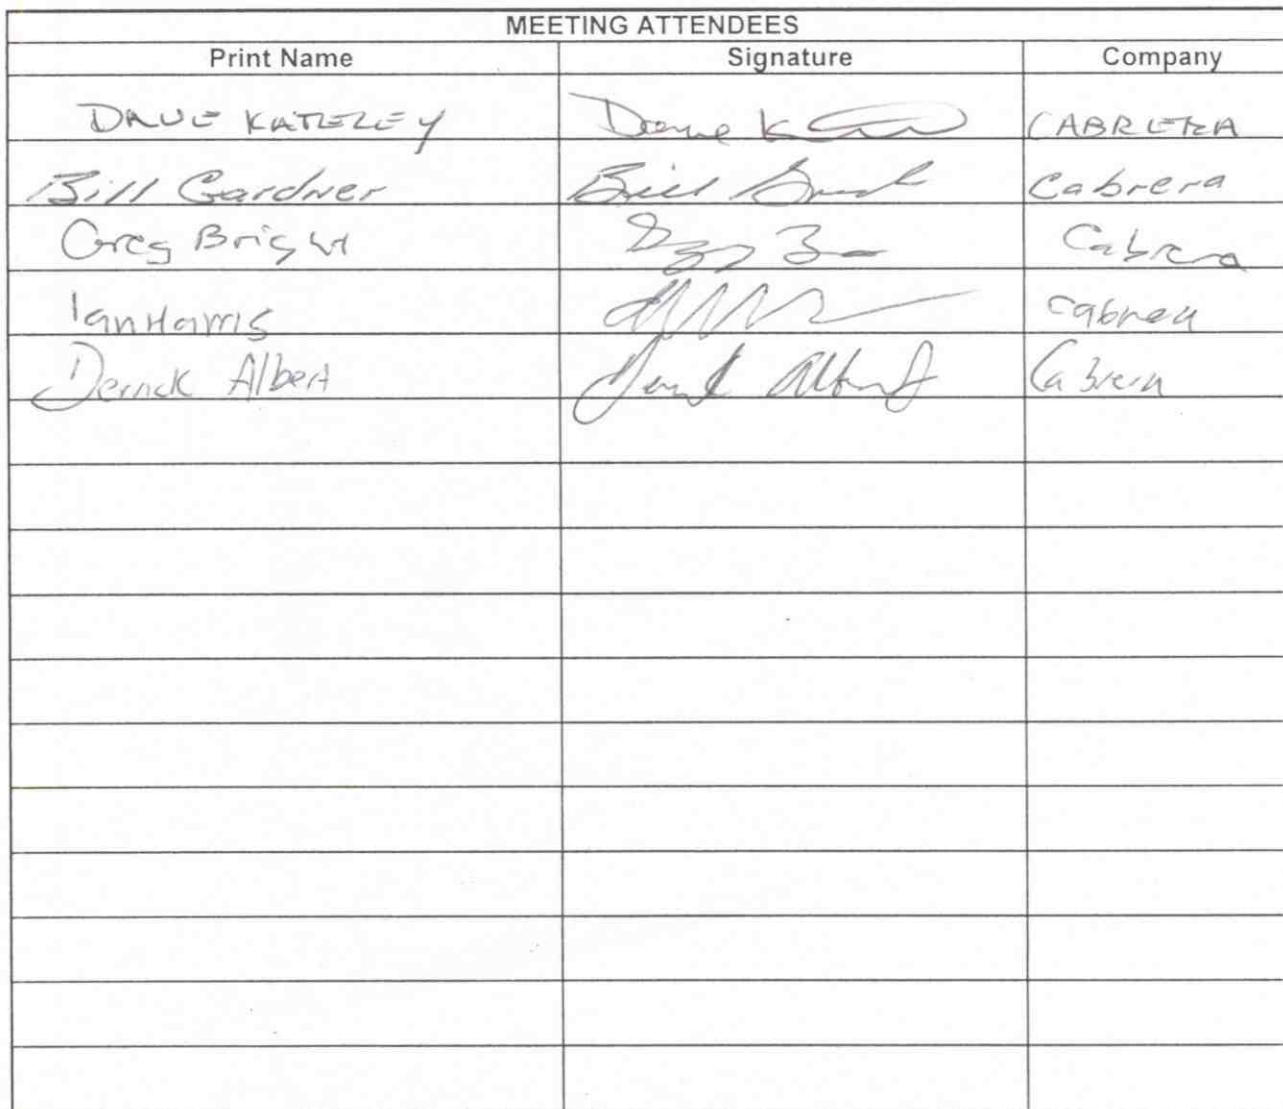 MEETING ATTENDEES
Print Name Signature Company
DAVE KATELEY Dave K CABRERA
Bill Gardner Bill Cabrera
Greg Bright Cabrera
Ian Harris Cabrera
Derrick Albert Derrick Albert Cabrera